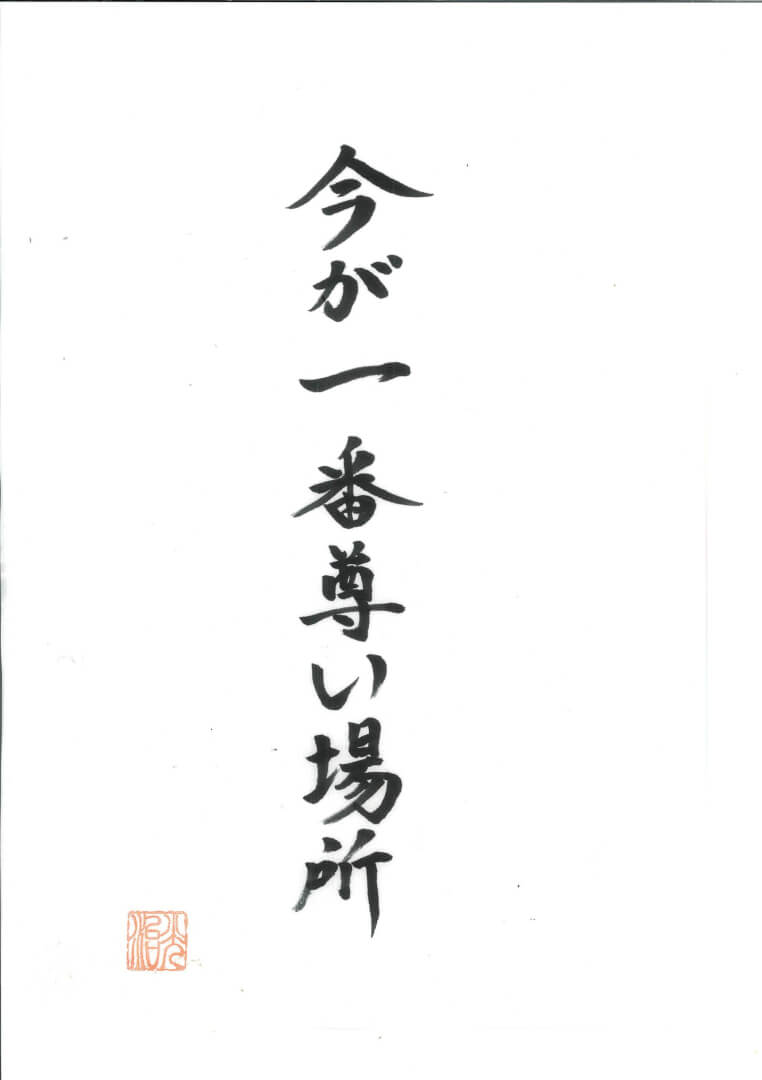 今が一番尊い場所